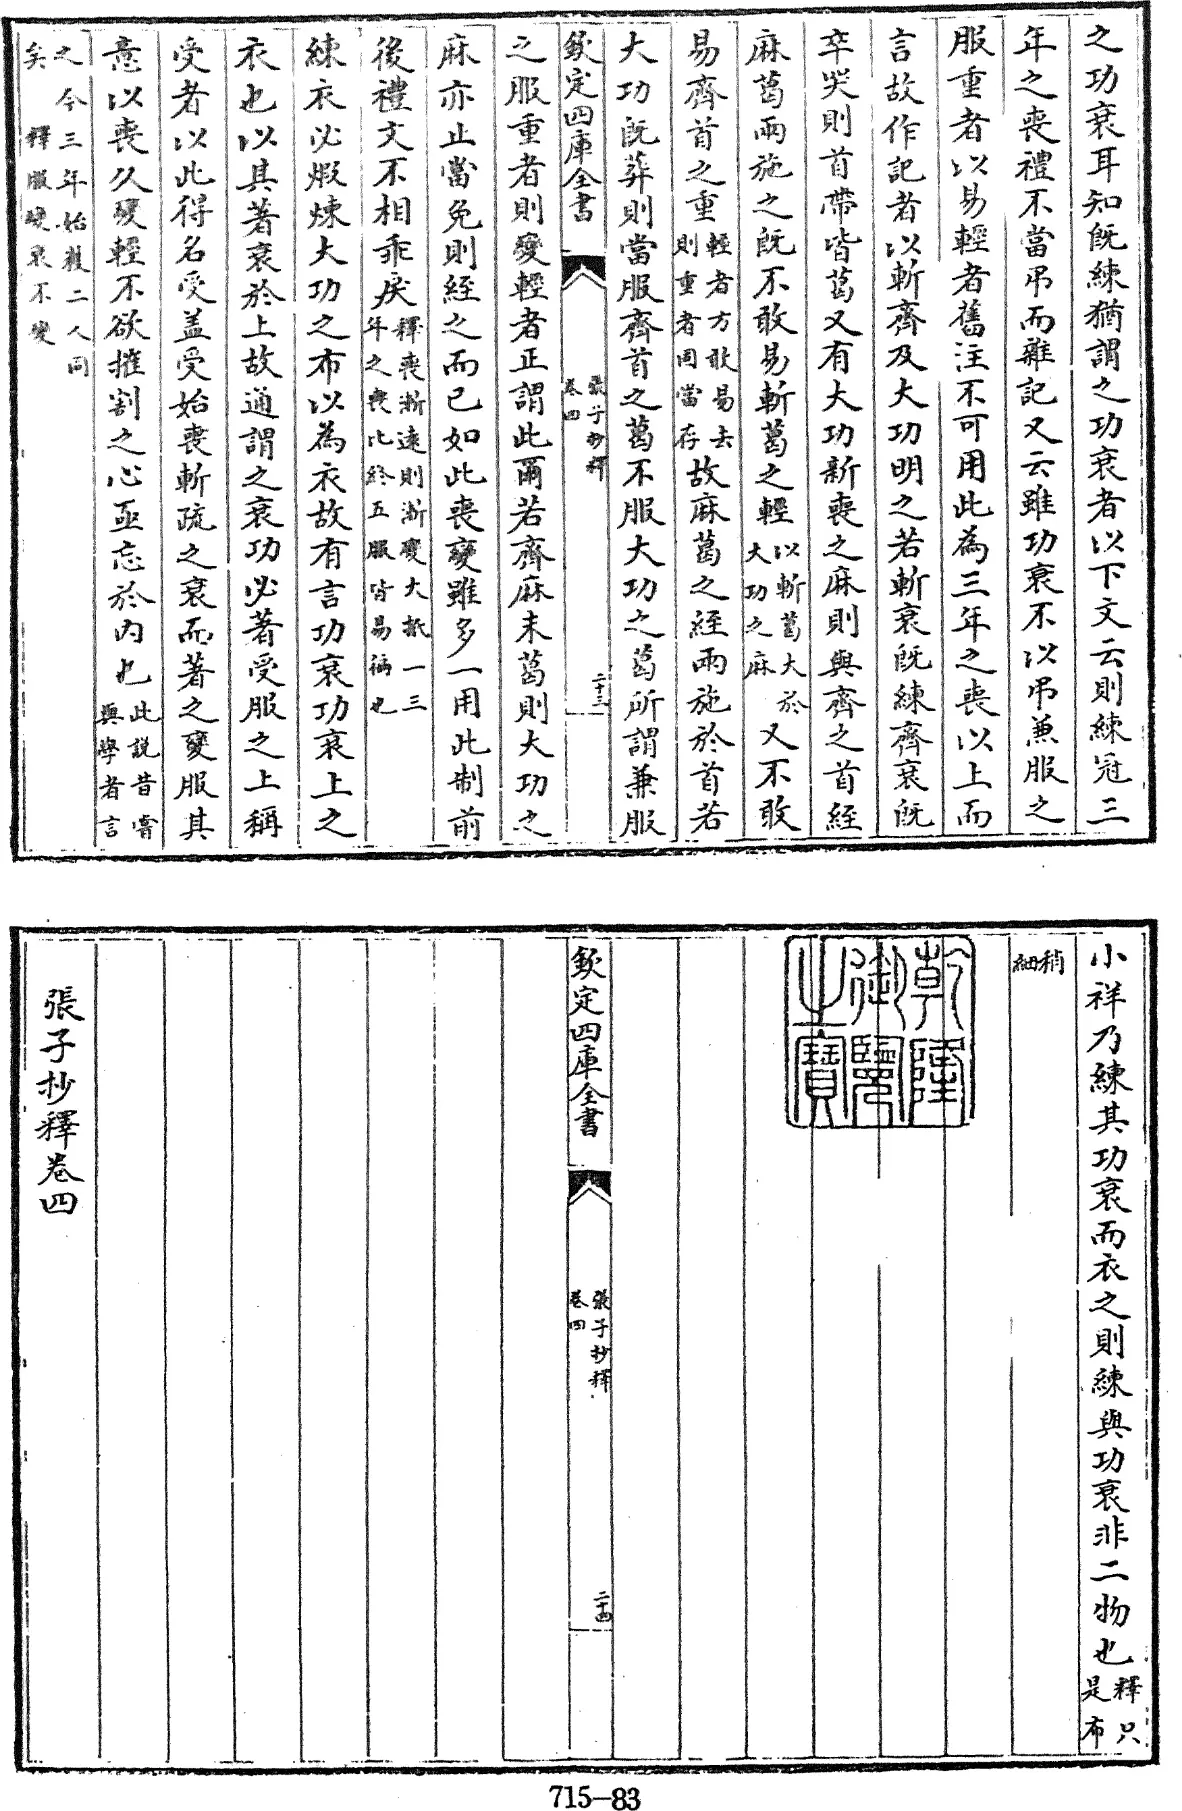 之功衰耳知既練猶謂之功衰者以下文云則練冠三
年之喪禮不當弔而雜記又云雖功衰不以弔兼服之
服重者以易輕者舊注不可用此為三年之喪以上而
言故作記者以斬齊及大功明之若斬衰既練齊衰既
卒哭則首帶皆葛又有大功新喪之麻則與齊之首絰
麻葛兩施之既不敢易斬葛之輕以斬葛大於大功之麻又不敢
易齊首之重輕者方敢易去則重者固當存故麻葛之絰兩施於首若
大功既葬則當服齊首之葛不服大功之葛所謂兼服
欽定四庫全書
張子抄釋
卷四
二十三
之服重者則變輕者正謂此爾若齊麻未葛則大功之
麻亦止當免則絰之而已如此喪變雖多一用此制前
後禮文不相乖戾釋喪漸遠則漸變大抵一三年之喪比終五服皆易徧也
練衣必煆煉大功之布以為衣故有言功衰功衰上之
衣也以其著衰於上故通謂之衰功必著受服之上稱
受者以此得名受盖受始喪斬疏之衰而著之變服其
意以喪久變輕不欲摧割之心亟忘於内也此說昔嘗與學者言
之今三年始獲二人同
矣 釋服變衰不變
小祥乃練其功衰而衣之則練與功衰非二物也釋只是布
稍細
乾隆御覽之寶
欽定四庫全書
張子抄釋
卷四
二十四
張子抄釋卷四
715-83